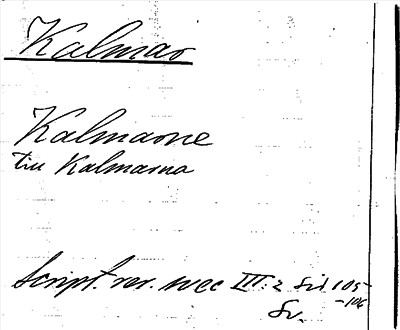 Kalmar
Kalmarne
till Kalmarna
Script. rer. svec III:2 Sid 105
-106
Sv.